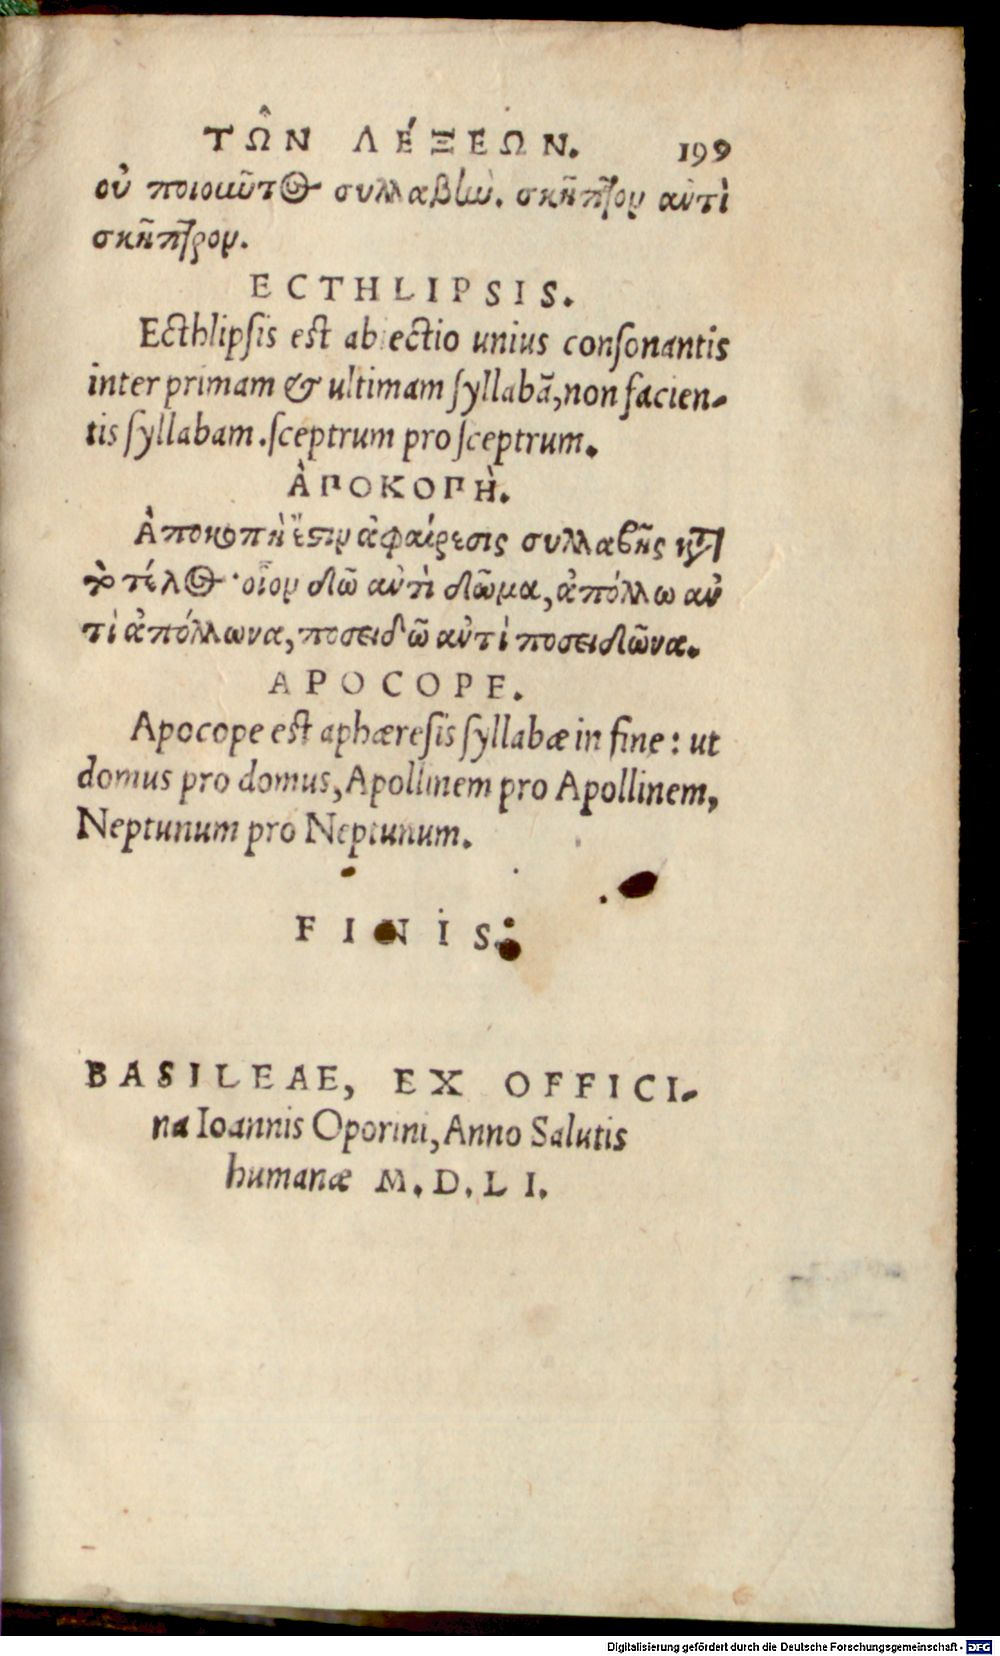 ΤΩ͂Ν ΛΈΞΕΩΝ. 199
οὐ ποιοιῶτος συλλαβὴν. σκῆπτον αὐτὶ
σκῆπτρον.
ECTHLIPSIS.
Ecthlipſis est abiectio unius conſonantis
inter primam & ultimam ſyllabã, non facien-
tis ſyllabam. ſceptrum pro ſceptrum.
ἈΠΟΚΟΠῊ.
Ἀποκοπὴ ἔστιν ἀφαίρεσις συλλαβῆς κατὰ
τὸ τέλος· οἷον δῶ αὐτὶ δῶμα, ἀπόλλω αὐ
τὶ ἀπόλλωνα, ποσειδῶ αὐτὶ ποσειδῶνα.
APOCOPE.
Apocope est aphæreſis ſyllabæ in fine: ut
domus pro domus, Apollinem pro Apollinem,
Neptunum pro Neptunum.
FINIS.
BASILEAE, EX OFFICI-
na Ioannis Oporini, Anno Salutis
humanæ M. D. LI.
Digitalisierung gefördert durch die Deutsche Forschungsgemeinschaft - DFG